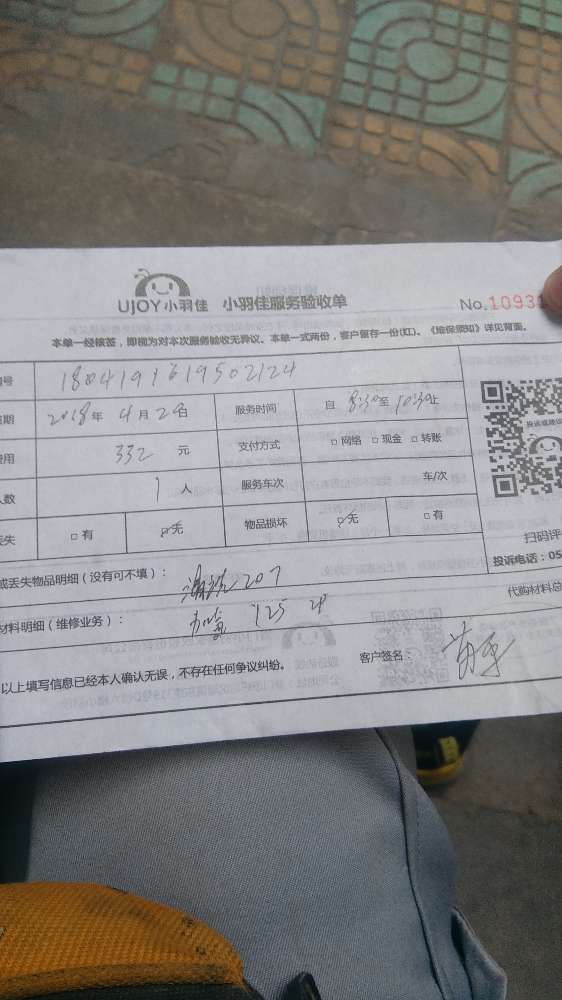 UJOY小羽佳 小羽佳服务验收单
No.1093
本单一经核签，即视为对本次服务验收无异议。本单一式两份，客户留存一份(红)。《维保须知》详见背面。
号 1804191619502124
期 2018年4月20日 服务时间 自 8:30至10:30止
费用 332 元 支付方式 □网络 □现金 □转账
人数 1 人 服务车次 车/次
丢失 □有 □无 物品损坏 □无 □有
扫码评
投诉电话：05
或丢失物品明细（没有可不填）： 207
代购材料总
材料明细（维修业务）： 125
以上填写信息已经本人确认无误，不存在任何争议纠纷。 客户签名：